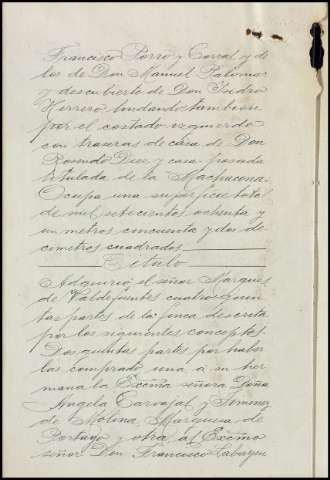 Francisco Porro y Corral y de
los de Don Manuel Palomar
y descubierto de Don Isidro
Herrero lindando tambien
por el costado izquierdo
con traseras de casa de Don
Rosendo Diez y casa posada
titulada de la Machacona.
Ocupa una superficie total
de mil setecientos ochenta y
un metros cincuenta y dos de
cimetros cuadrados
Titulo
Adquirió el señor Marqués
de Valdefuentes cuatro quin
tas partes de la finca descrita
por los siguientes conceptos.
Dos quintas partes por haber
las comprado una á su her
mana la Excma señora Doña
Angela Carvajal y Jimenez
de Molina Marquesa de
Portago y otra al Excmo
señor Don Francisco